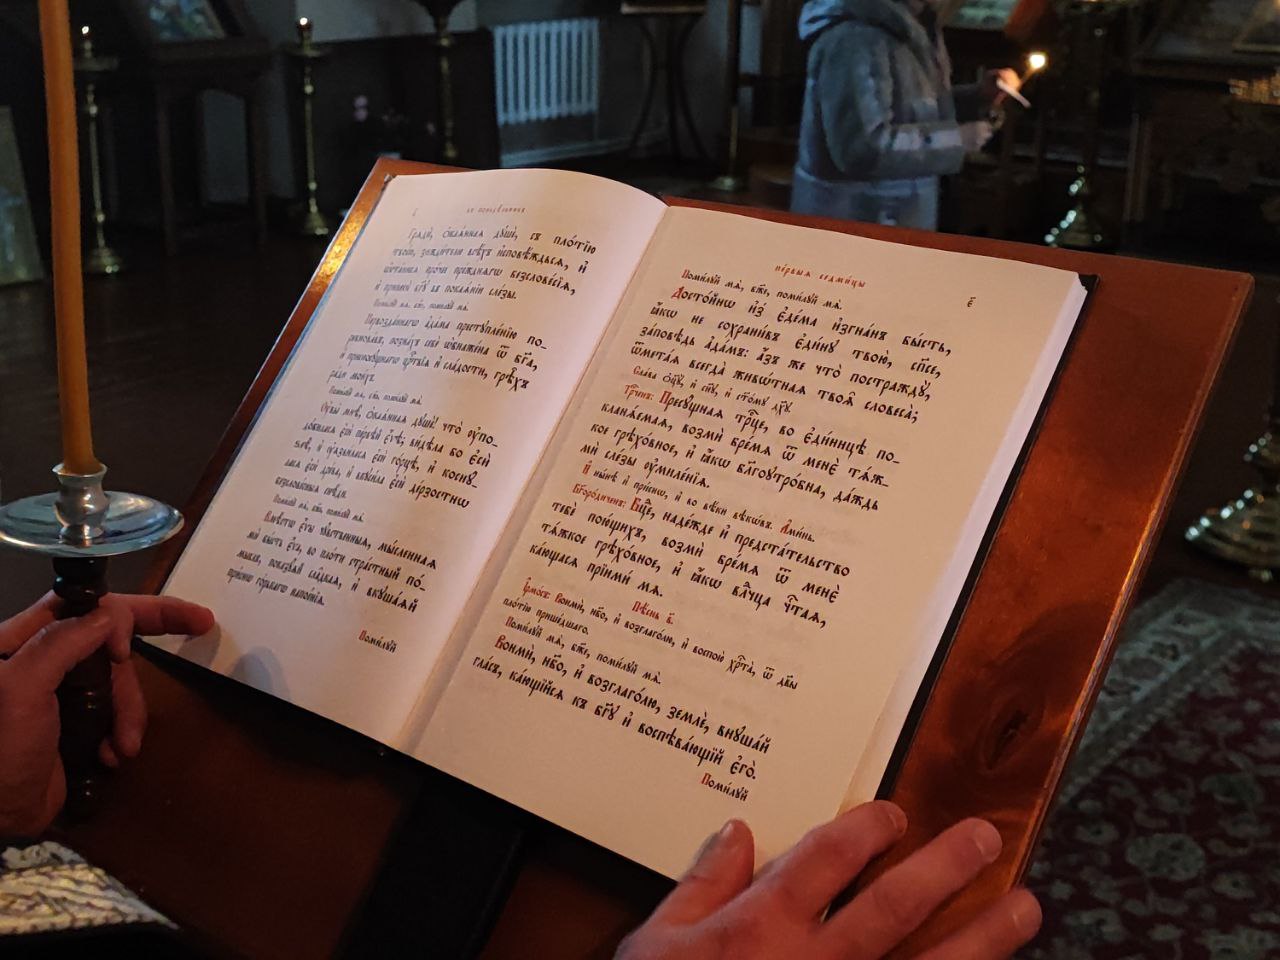 въ понедѣльникъ
Грѧдѝ, ѻ҆каѧ́ннаѧ дꙋшѐ, съ пло́тїю
твое́ю, зижди́телю всѣ́хъ и҆сповѣ́ждьсѧ, и҆
ѡ҆ста́нисѧ про́чее пре́ждна́гѡ безслове́сїѧ,
и҆ принесѝ бг҃ꙋ въ покаѧ́нїи сле́зы.
Поми́лꙋй мѧ̀, бж҃е, поми́лꙋй мѧ̀.
Первозда́ннаго а҆да́ма престꙋпле́нїю по-
ревнова́въ, позна́хъ себѐ ѡ҆бнаже́на ѿ бг҃а,
и҆ присносꙋ́щнагѡ црⷭ҇твїѧ и҆ сла́дости, грѣ̑хъ
ра́ди мои́хъ.
Поми́лꙋй мѧ̀, бж҃е, поми́лꙋй мѧ̀.
Оу҆вы̀ мнѣ̀, ѻ҆каѧ́ннаѧ дꙋшѐ! что̀ ᲂу҆по-
до́биласѧ є҆сѝ пе́рвѣй є҆́ѵѣ; ви́дѣла бо є҆сѝ
ѕлѣ̀, и҆ ᲂу҆ѧзви́ласѧ є҆сѝ го́рцѣ, и҆ коснꙋ́-
ласѧ є҆сѝ дре́ва, и҆ вкꙋси́ла є҆сѝ де́рзостнѡ
безслове́сныѧ снѣ́ди.
Поми́лꙋй мѧ̀, бж҃е, поми́лꙋй мѧ̀.
Вмѣ́стѡ є҆́ѵы чꙋ́вственныѧ, мы́сленнаѧ
мѝ бы́сть є҆́ѵа, во пло́ти стра́стный по́-
мыслъ, показꙋ́ѧй сла̑дкаѧ, и҆ вкꙋша́ѧй
при́снѡ го́рькагѡ напое́нїѧ.
Поми́лꙋй
пе́рвыѧ седми́цы
є҃
Поми́лꙋй мѧ̀, бж҃е, поми́лꙋй мѧ̀.
Досто́йнѡ и҆з̾ є҆де́ма и҆згна́нъ бы́сть,
ꙗ҆́кѡ не сохрани́въ є҆ди́нꙋ твою̀, сп҃се,
за́повѣдь а҆да́мъ: а҆́зъ же что̀ постраждꙋ̀,
ѿмета́ѧ всегда̀ живѡ́тнаѧ твоѧ̑ словеса̀;
Сла́ва ѻ҆ц҃ꙋ̀, и҆ сн҃ꙋ, и҆ ст҃о́мꙋ дх҃ꙋ.
Трⷪ҇ченъ: Пресꙋ́щнаѧ трⷪ҇це, во є҆ди́ницѣ по-
кланѧ́емаѧ, возмѝ бре́мѧ ѿ менє̀ тѧ́ж-
кое грѣхо́вное, и҆ ꙗ҆́кѡ бл҃гоꙋтро́бна, да́ждь
мѝ сле́зы ᲂу҆миле́нїѧ.
И҆ ны́нѣ и҆ при́снѡ, и҆ во вѣ́ки вѣкѡ́въ. А҆ми́нь.
Бг҃оро́диченъ: Бцⷣе, наде́жде и҆ предста́тельство
тебѐ пою́щихъ, возмѝ бре́мѧ ѿ менє̀
тѧ́жкое грѣхо́вное, и҆ ꙗ҆́кѡ влⷣчца чⷭ҇таѧ,
ка́ющасѧ прїимѝ мѧ̀.
Пѣ́снь в҃.
І҆рмо́съ: Вонмѝ, нб҃о, и҆ возглаго́лю, и҆ воспою̀ хрⷭ҇та̀, ѿ дв҃ы
пло́тїю прише́дшаго.
Поми́лꙋй мѧ̀, бж҃е, поми́лꙋй мѧ̀.
Вонмѝ, нб҃о, и҆ возглаго́лю, землѐ, внꙋша́й
гла́съ, ка́ющїйсѧ къ бг҃ꙋ и҆ воспѣва́ющїй є҆го̀.
Поми́лꙋй